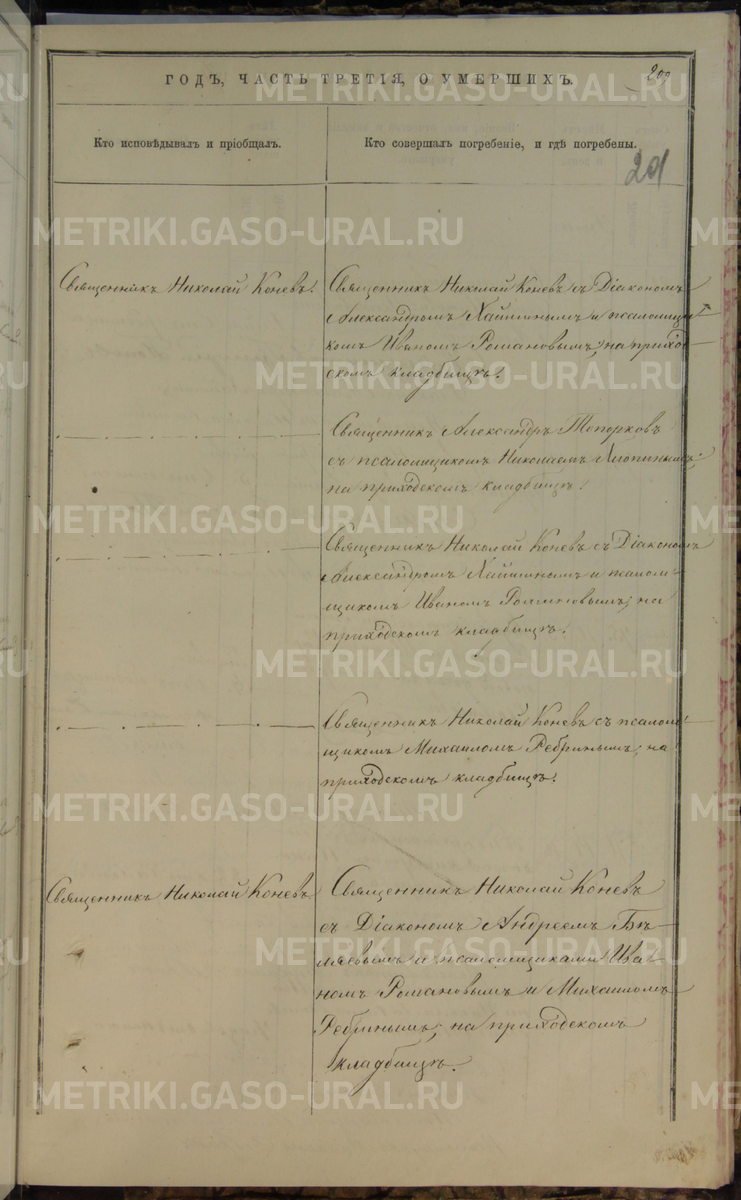 ГОДЪ, ЧАСТЬ ТРЕТІЯ, О УМЕРШИХЪ.
200
Кто исповѣдывалъ и пріобщалъ.
Кто совершалъ погребеніе, и гдѣ погребены.
201
Священникъ Николай Коневъ.
Священникъ Николай Коневъ съ Діакономъ
Александромъ и псаломщи-
комъ Иваномъ Романовымъ, на приход-
скомъ кладбищѣ.
Священникъ Александръ Топорковъ
съ псаломщикомъ Николаемъ
на приходскомъ кладбищѣ.
Священникъ Николай Коневъ съ Діакономъ
Александромъ и псалом-
щикомъ Иваномъ Романовымъ, на
приходскомъ кладбищѣ.
Священникъ Николай Коневъ съ псалом-
щикомъ Михаиломъ Ребринымъ, на
приходскомъ кладбищѣ.
Священникъ Николай Коневъ
Священникъ Николай Коневъ
съ Діакономъ Андреемъ
и псаломщиками Ива-
номъ Романовымъ и Михаиломъ
Ребринымъ, на приходскомъ
кладбищѣ.
METRIKI.GASO-URAL.RU